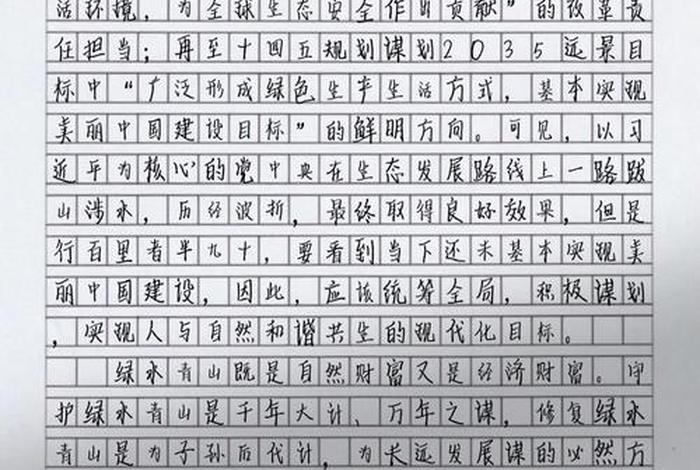 活环境，为全球生态安全作出贡献”的改革责
任担当；再至十四五规划谋划2035远景目
标中“广泛形成绿色生产生活方式，基本实现
美丽中国建设目标”的鲜明方向。可见，以习
近平为核心的党中央在生态发展路线上一路跋
山涉水，历经波折，最终取得良好效果，但是
行百里者半九十，要看到当下还未基本实现美
丽中国建设，因此，应该统筹全局，积极谋划
，实现人与自然和谐共生的现代化目标。
绿水青山既是自然财富又是经济财富。守
护绿水青山是千年大计、万年之谋，修复绿水
青山是为子孙后代计，为长远发展谋的必然方